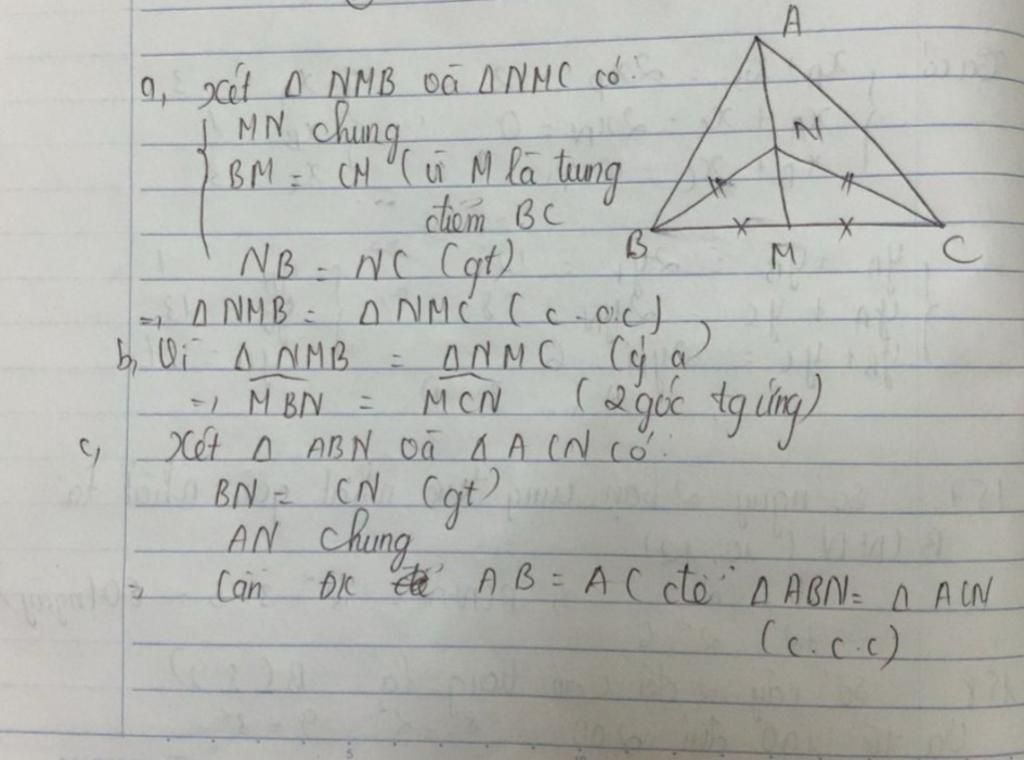 A
a, Xét Δ NMB và ΔNMC có:
MN chung
N
BM = CM (vì M là tung
điểm BC
B M C
NB = NC (gt)
=> Δ NMB = Δ NMC ( c - c.c)
b, Vì Δ NMB = Δ NMC (ý a)
=> MBN = MCN ( 2 góc tg ứng)
c, Xét Δ ABN và Δ ACN có:
BN = CN (gt)
AN chung
Cần ĐK AB = AC để Δ ABN = Δ ACN
(c.c.c)